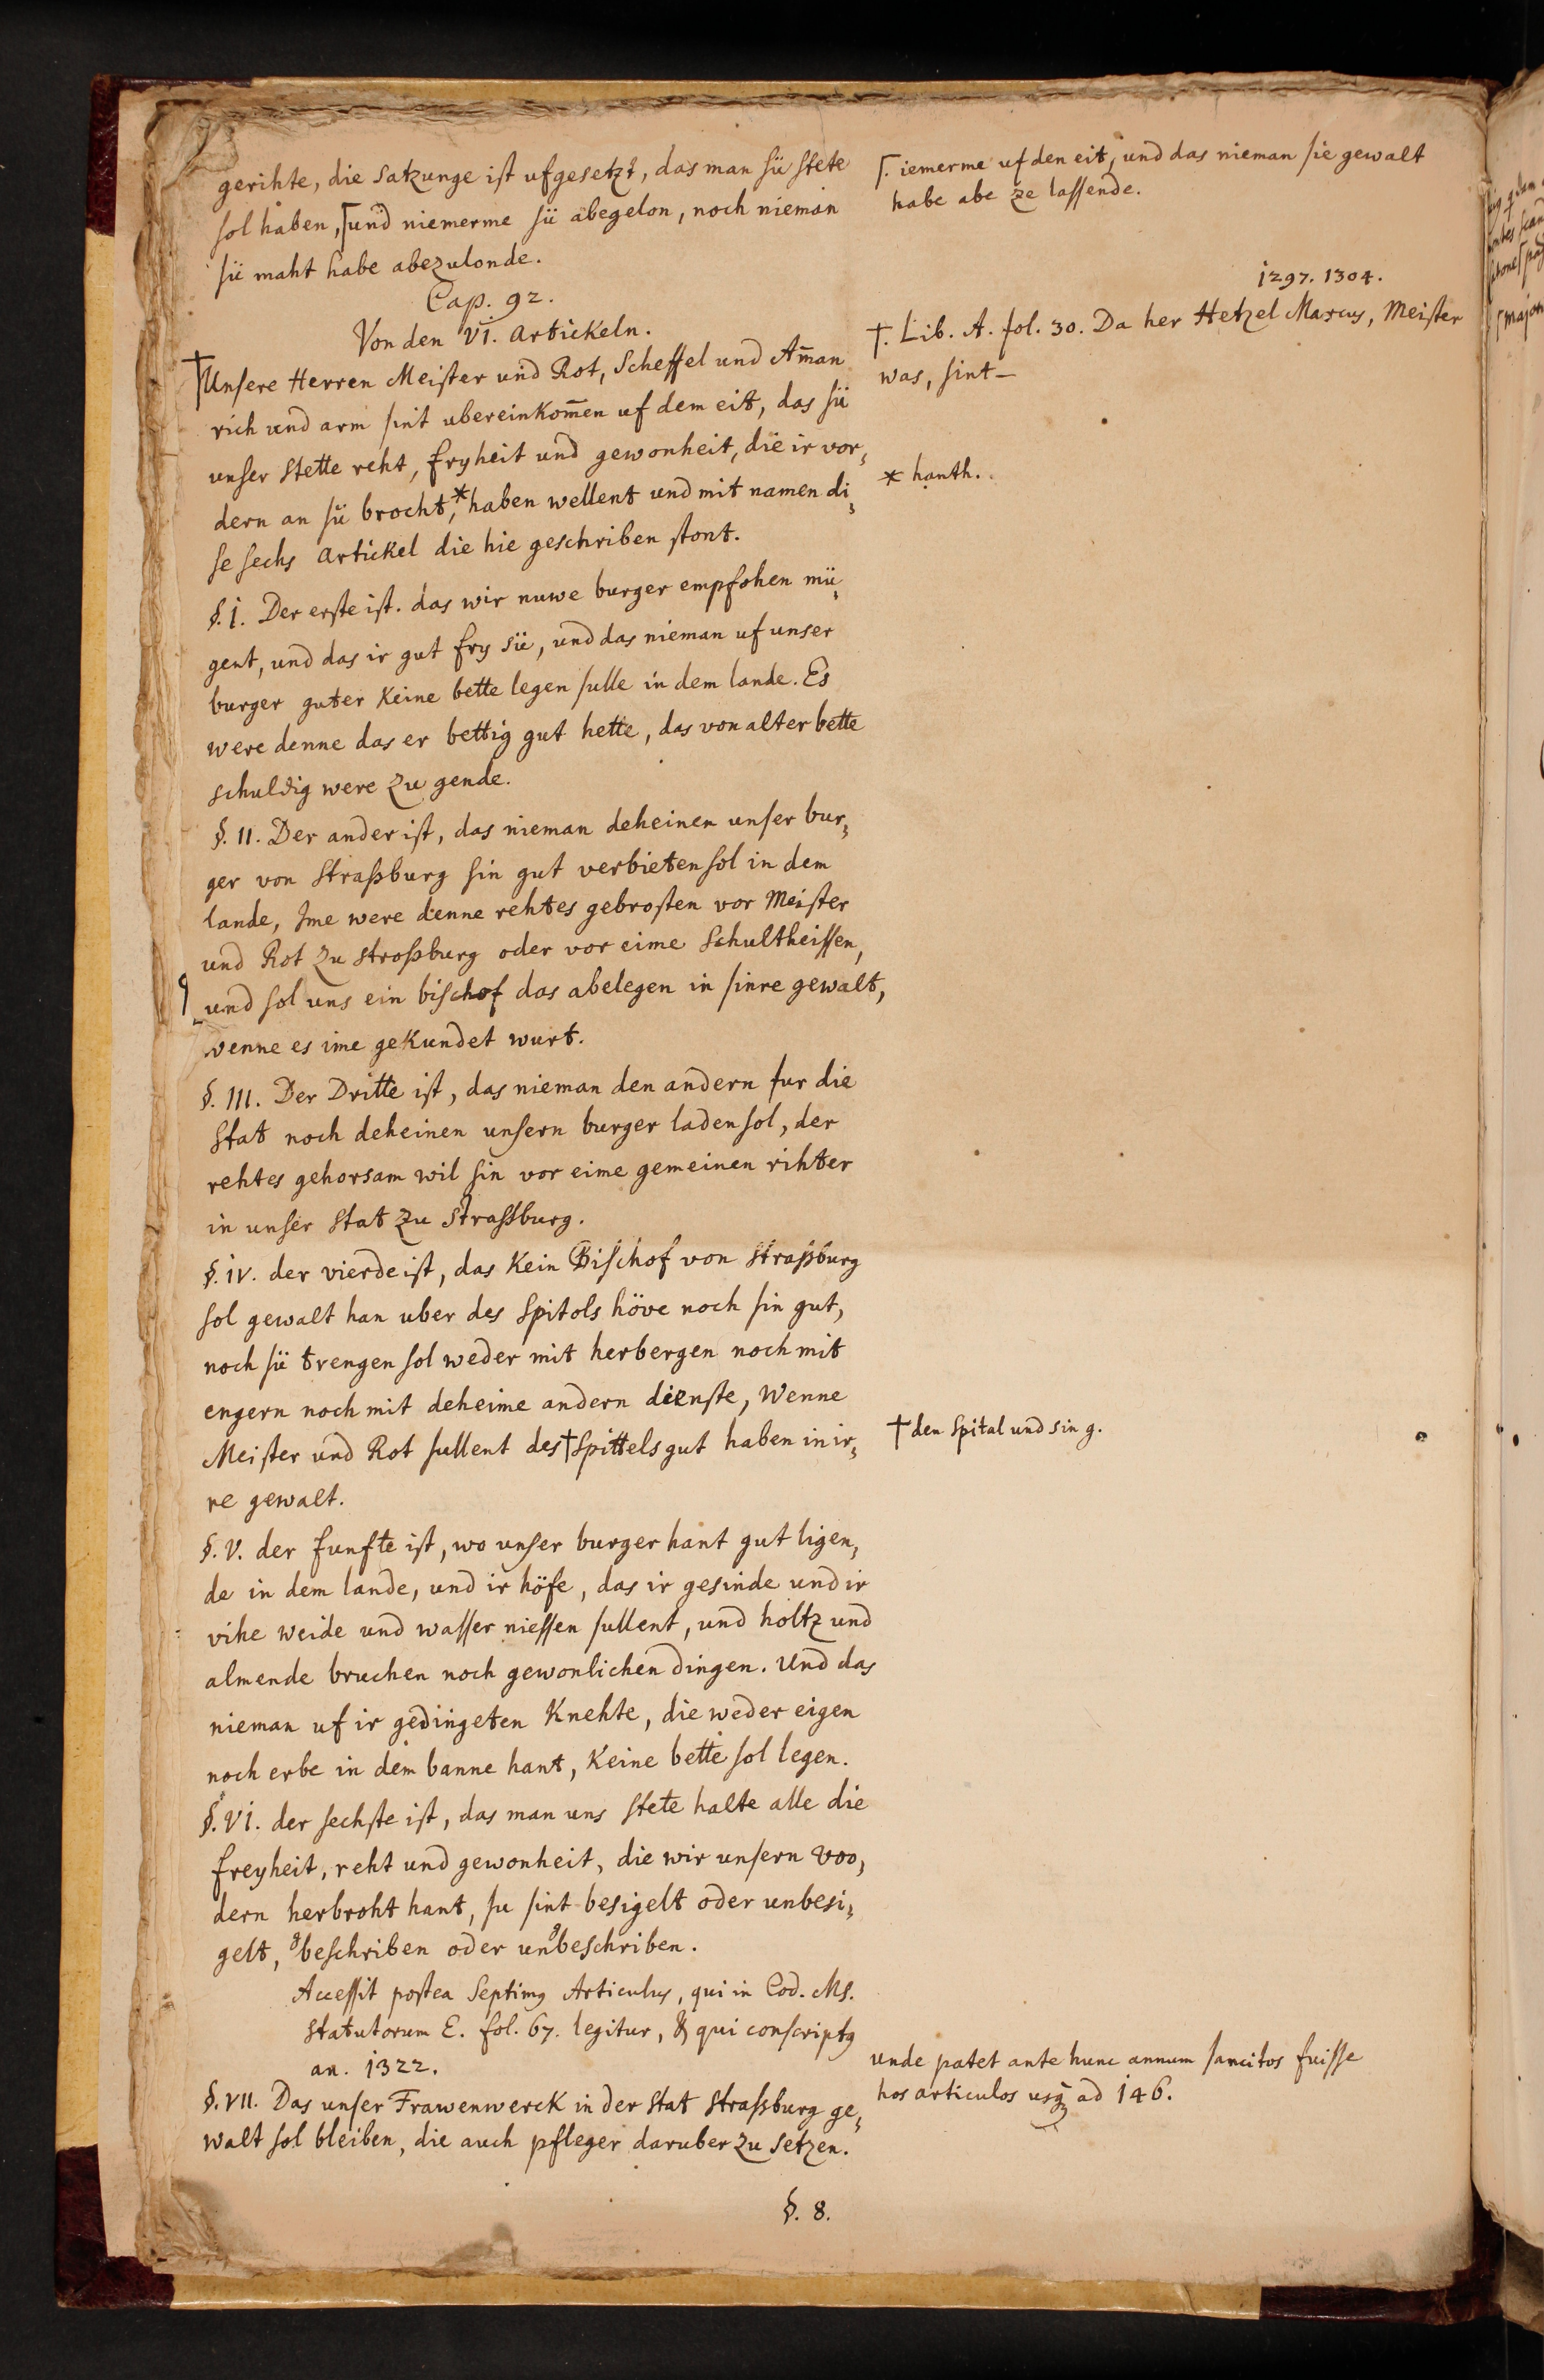 gerihte, die Satzunge ist ufgesetzt, das man sü stete
sol haben, ⌈und niemerme sü abegelon, noch nieman
sü maht habe abezulonde.
⌈. iemerme uf den eit, und das nieman sie gewalt
habe abe ze lassende.
Cap. 92.
Von den VI. Artickeln.
1297. 1304.
†. Lib. A. fol. 30. Da her Hetzel Marcus, Meister
was, sint —
†Unsere Herren Meister und Rot, Scheffel und Am̄an
rich und arm sint ubereinkom̄en uf dem eit, das sü
unser Stette reht, fryheit und gewonheit, die ir vor,
dern an sü brocht,* haben wellent und mit namen di,
se sechs Artickel die hie geschriben stont.
* hanth.
§. I. Der erste ist. das wir nuwe burger empfohen mü,
gent, und das ir gut fry sü, und das nieman uf unser
burger guter keine bette legen sulle in dem lande. Es
were denne das er bettig gut hette, das von alter bette
schuldig were zu gende.
§. II. Der ander ist, das nieman deheinen unser bur,
ger von Straßburg sin gut verbieten sol in dem
lande, Ime were denne rehtes gebrosten vor Meister
und Rot zu Stroßburg oder vor eime Schultheissen,
und sol uns ein bischof das abelegen in sinre gewalt,
wenne es ime gekundet wurt.
§. III. Der Dritte ist, das nieman den andern fur die
Stat noch deheinen unsern burger laden sol, der
rehtes gehorsam wil sin vor eime gemeinen rihter
in unser Stat zu Strassburg.
§. IV. der vierde ist, das kein Bischof von Straßburg
sol gewalt han uber des Spitols höve noch sin gut,
noch sü trengen sol weder mit herbergen noch mit
engern noch mit deheime andern dienste, Wenne
Meister und Rot sullent des †Spittels gut haben in ir,
re gewalt.
† den Spital und sin g.
§. V. der funfte ist, wo unser burger hant gut ligen,
de in dem lande, und ir höfe, das ir gesinde und ir
vihe weide und wasser niessen sullent, und holtz und
almende bruchen noch gewonlichen dingen. Und das
nieman uf ir gedingeten Knehte, die weder eigen
noch erbe in dem banne hant, keine bette sol legen.
§. VI. der sechste ist, das man uns stete halte alle die
freyheit, reht und gewonheit, die wir unsern voo,
dern herbroht hant, su sint besigelt oder unbesi,
gelt, gbeschriben oder ungbeschriben.
Accessit postea Septimꝰ Articulus, qui in Cod. Ms.
Statutorum E. fol. 67. legitur, & qui conscriptꝰ
an. 1322.
unde patet ante hunc annum sancitos fuisse
hos articulos usq̃ ad 146.
§. VII. Das unser Frawenwerck in der Stat Straßburg ge,
walt sol bleiben, die auch pfleger daruber zu setzen.
§. 8.